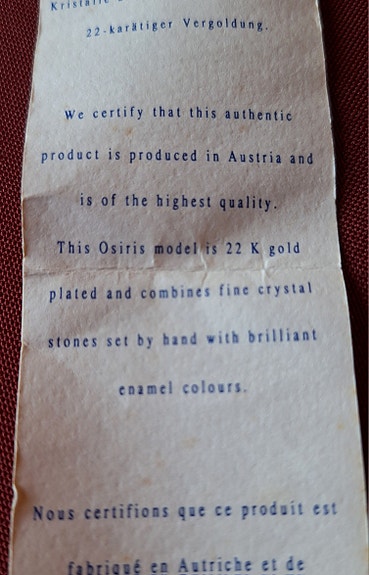 Kristalle
22-karätiger Vergoldung.
We certify that this authentic
product is produced in Austria and
is of the highest quality.
This Osiris model is 22 K gold
plated and combines fine crystal
stones set by hand with brilliant
enamel colours.
Nous certifions que ce produit est
fabriqué en Autriche et de